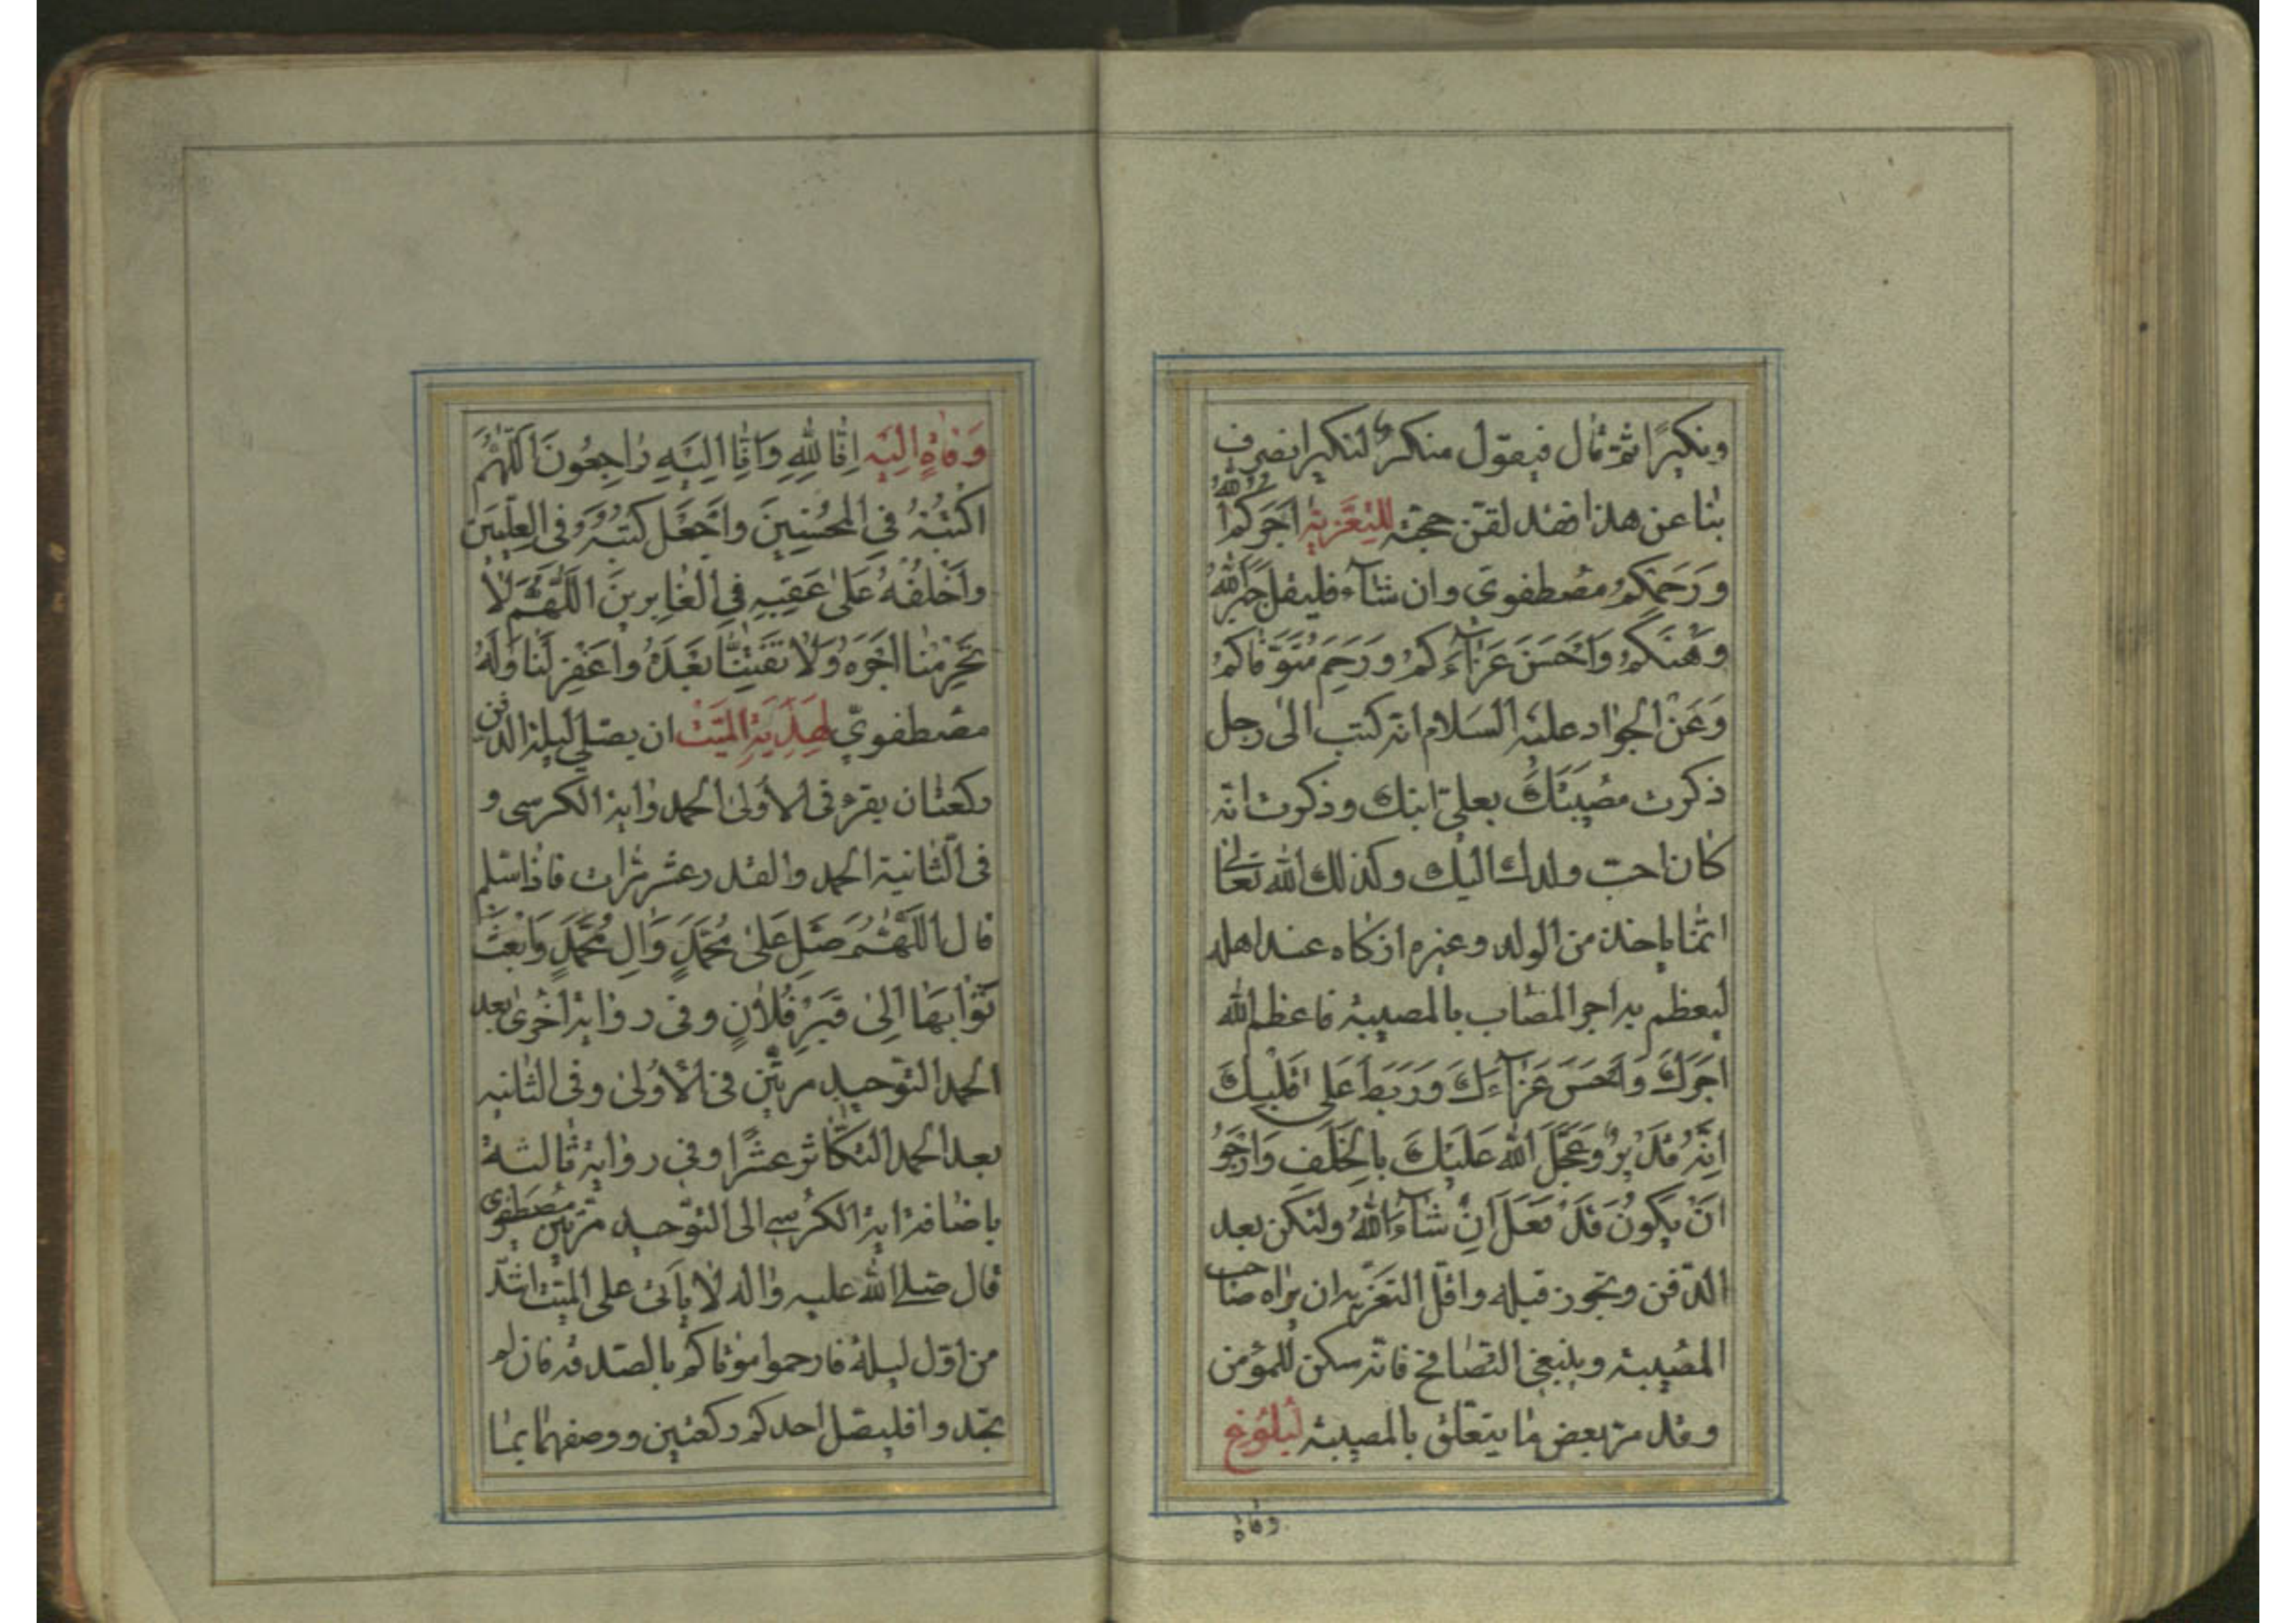 ونكيرًا ثمّ قال فيقول منكرٌ لنكير انصرف
بنا عن هذا فقد لقّن حجّته للتّعزية اجَرَكُمُ اللهُ
وَرَحِمَكُمْ مصطفوى وان شآء فليقل جَبَرَ اللهُ
وَهْنَكُمْ وَاَحْسَنَ عَزآءَكُمْ وَرَحِمَ مُتَوَفّاكُمْ
وَعَنْ الجواد عليه السّلام انّه كتب الى رجل
ذكرت مصيبتك بعلىّ ابنك وذكرت انّه
كان احبّ ولدك اليك وكذلك الله تعالى
انّما ياخذ من الولد وغيره ازكاه عند اهله
ليعظم به اجر المصاب بالمصيبة فاعظم الله
اجرَكَ وَاَحْسَنَ عَزآءَكَ وَرَبَطَ عَلى قَلْبِكَ
اِنَّهُ قَديرٌ وَعَجَّلَ اللهُ عَلَيْكَ بِالخَلَفِ وَاَرْجُو
اَنْ يَكُونَ قَدْ فَعَلَ اِنْ شآءَ اللهُ ولتكن بعد
الدّفن وتجوز قبله واقلّ التّعزية ان يراه صاحب
المصيبة وينبغى التّصافح فانّه سكن للمؤمن
وقد مرّ بعض ما يتعلّق بالمصيبة لبلوغ
وفاة
وَفاةٍ اِلَيْهِ اِنّا لِلّهِ وَاِنّا اِلَيْهِ راجِعُونَ اَللّهُمَّ
اكْتُبْهُ فِي المُحْسِنِينَ وَاجْعَل كتبه فى العِلِّيّينَ
وَاخْلُفْهُ عَلى عَقِبِهِ فِي الغابِرينَ اَللّهُمَّ لا
تَحْرِمْنا اَجْرَهُ وَلا تَفْتِنّا بَعْدَهُ وَاغْفِرْ لَنا وَلَهُ
مصطفوىّ لِهَدِيَّةِ المَيِّتْ ان يصلّى ليلة الدّفن
ركعتان يقرء فى الاولى الحمد واية الكرسى و
فى الثّانية الحمد والقدر عشر مرّات فاذا سلّم
قال اللّهُمَّ صَلِّ عَلى مُحَمَّدٍ وَالِ مُحَمَّدٍ وَابْعَثْ
ثَوابَها اِلى قَبْرِ فُلانٍ وفى رواية اخرى بعد
الحمد التّوحيد مرّتين فى الاولى وفى الثّانية
بعد الحمد التّكاثر عشرًا وفى رواية ثالثة
باضافة اية الكرسى الى التّوحيد مرّتين مصطفوى
قال صلّى الله عليه واله لا يأتى على الميّت اشدّ
من اوّل ليلة فارحموا موتاكم بالصّدقة فان لم
تجدوا فليصلّ احدكم ركعتين ووصفهما بما